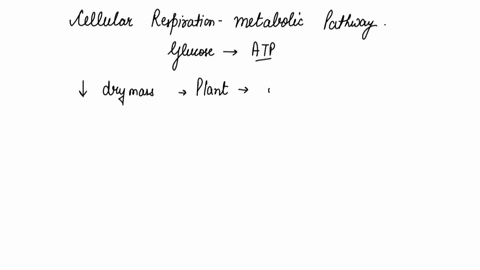 Cellular Respiration - metabolic Pathway.
Glucose → ATP
↓ dry mass → Plant →